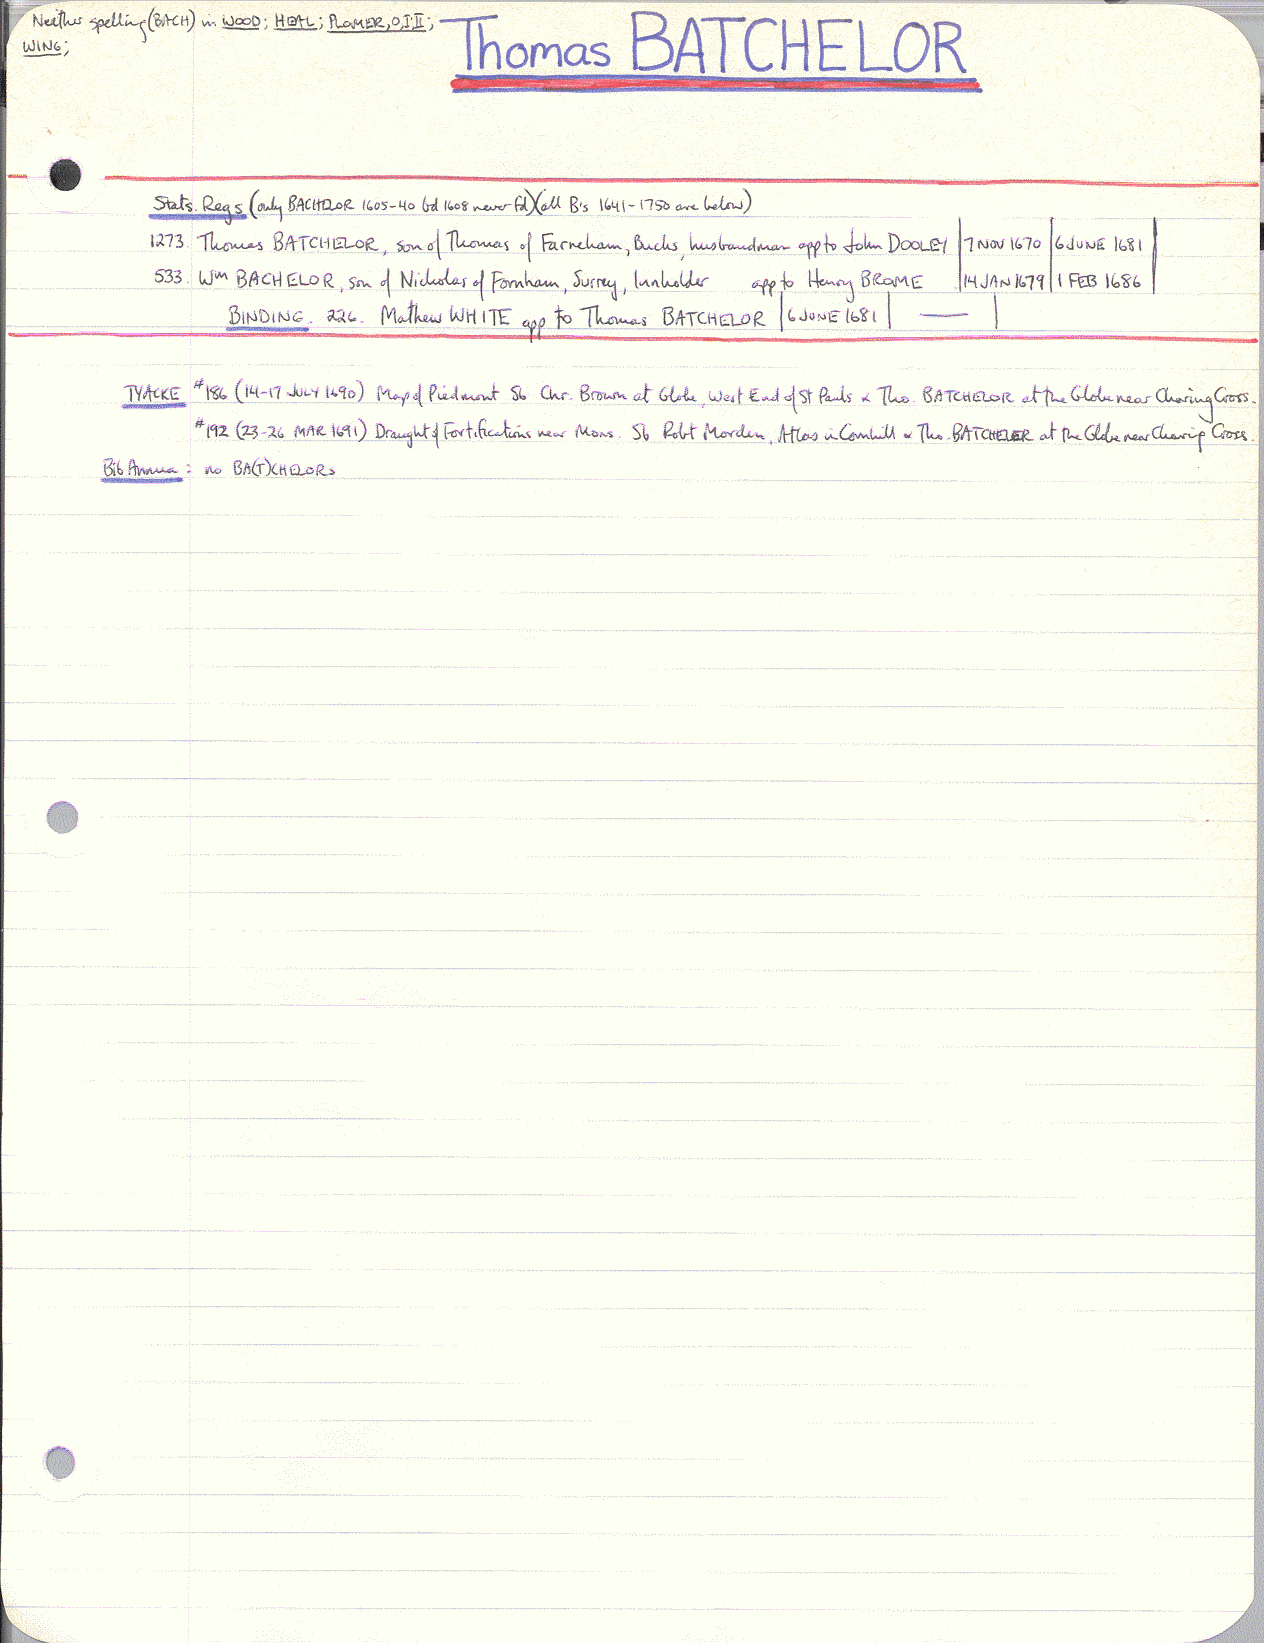 Neither spelling (BACH) in WOOD; HEAL; PLOMER, O, I, II;
WING;
Thomas BATCHELOR
Stats. Regs (only BACHELOR 1605-40 bd 1608 never fd)(all B's 1641-1750 are below)
1273. Thomas BATCHELOR, son of Thomas of Farneham, Bucks, husbandman app to John DOOLEY | 7 NOV 1670 | 6 JUNE 1681 |
533. Wm BACHELOR, son of Nicholas of Farnham, Surrey, Innholder app to Henry BROME | 14 JAN 1679 | 1 FEB 1686 |
BINDING. 226. Mathew WHITE app to Thomas BATCHELOR | 6 JUNE 1681 | — |
TYACKE #186 (14-17 JULY 1690) Map of Piedmont Sb Chr. Brown at Globe, West End of St Pauls & Tho. BATCHELOR at the Globe near Charing Cross.
#192 (23-26 MAR 1691) Draught of Fortifications near Mons. Sb Robt Morden, Atlas in Cornhill & Tho. BATCHELER at the Globe near Charing Cross.
Bib Annua: no BA(T)CHELORs